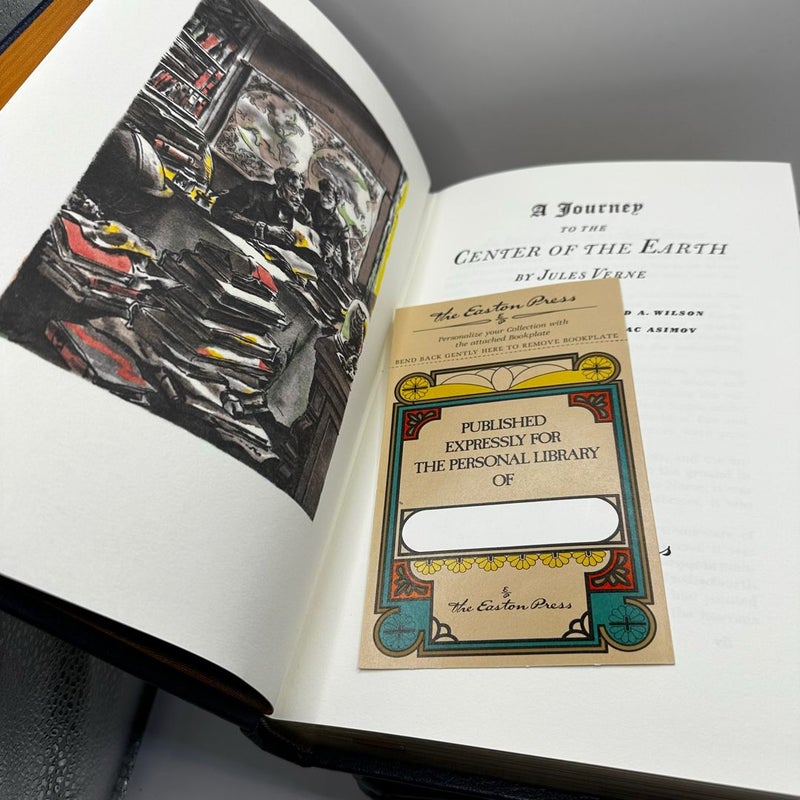 A Journey
TO THE
CENTER OF THE EARTH
BY JULES VERNE
D A. WILSON
AC ASIMOV
The Easton Press
Personalize your Collection with
the attached Bookplate
BEND BACK GENTLY HERE TO REMOVE BOOKPLATE
PUBLISHED
EXPRESSLY FOR
THE PERSONAL LIBRARY
OF
The Easton Press